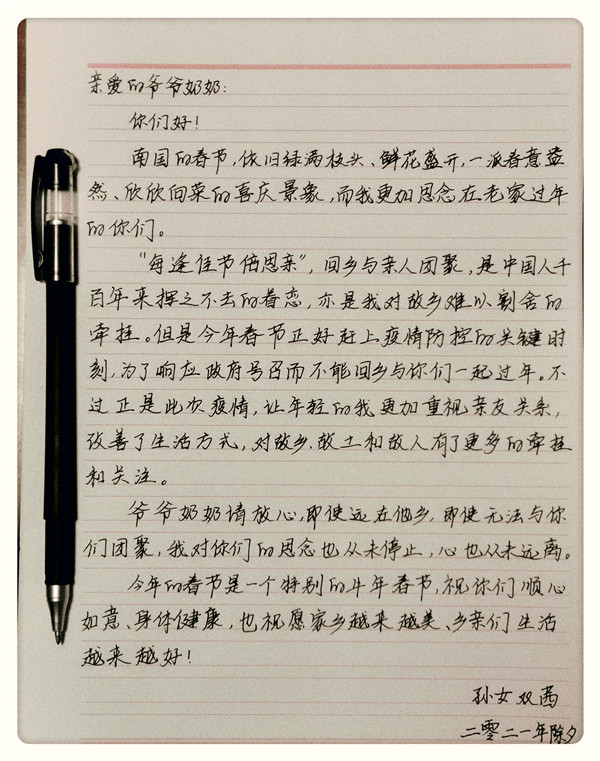 亲爱的爷爷奶奶:
你们好!
南国的春节,依旧绿满枝头、鲜花盛开,一派春意盎
然、欣欣向荣的喜庆景象,而我更加思念在老家过年
的你们。
"每逢佳节倍思亲",回乡与亲人团聚,是中国人千
百年来挥之不去的眷恋,亦是我对故乡难以割舍的
牵挂。但是今年春节正好赶上疫情防控的关键时
刻,为了响应政府号召而不能回乡与你们一起过年。不
过正是此次疫情,让年轻的我更加重视亲友关系,
改善了生活方式,对故乡、故土和故人有了更多的牵挂
和关注。
爷爷奶奶请放心,即使远在他乡,即使无法与你
们团聚,我对你们的思念也从未停止,心也从未远离。
今年的春节是一个特别的牛年春节,祝你们顺心
如意、身体健康,也祝愿家乡越来越美、乡亲们生活
越来越好!
孙女双茜
二零二一年除夕